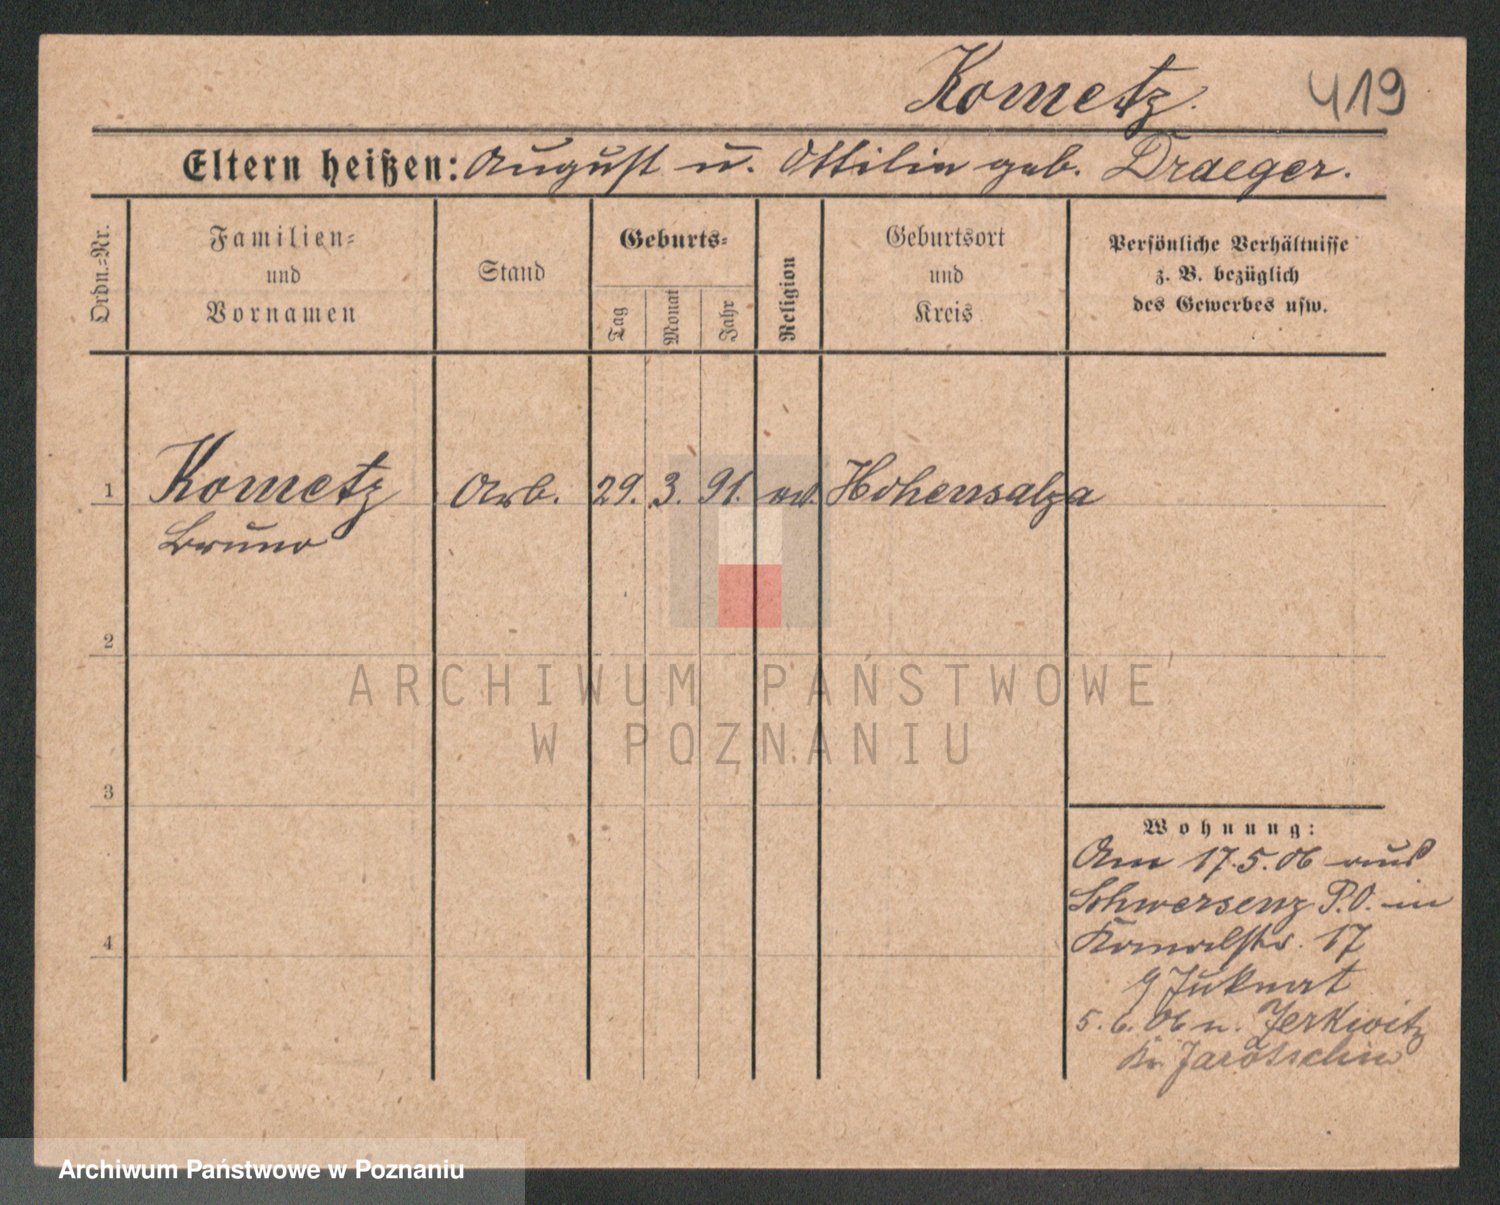 Kometz.
419
Eltern heißen: August u. Ottilie geb. Draeger.
Ordn.-Nr.
Familien-
und
Vornamen
Stand
Geburts-
Tag
Monat
Jahr
Religion
Geburtsort
und
Kreis
Persönliche Verhältnisse
z. B. bezüglich
des Gewerbes usw.
1 Kometz Arb. 29. 3. 91. Hohensalza
Bruno
2
3
4
Wohnung:
Am 17.5.06 aus
Schwersenz P.O. in
17
5.6.06 n. Zerkwitz
Kr. Jarotschin
ARCHIWUM PAŃSTWOWE
W POZNANIU
Archiwum Państwowe w Poznaniu